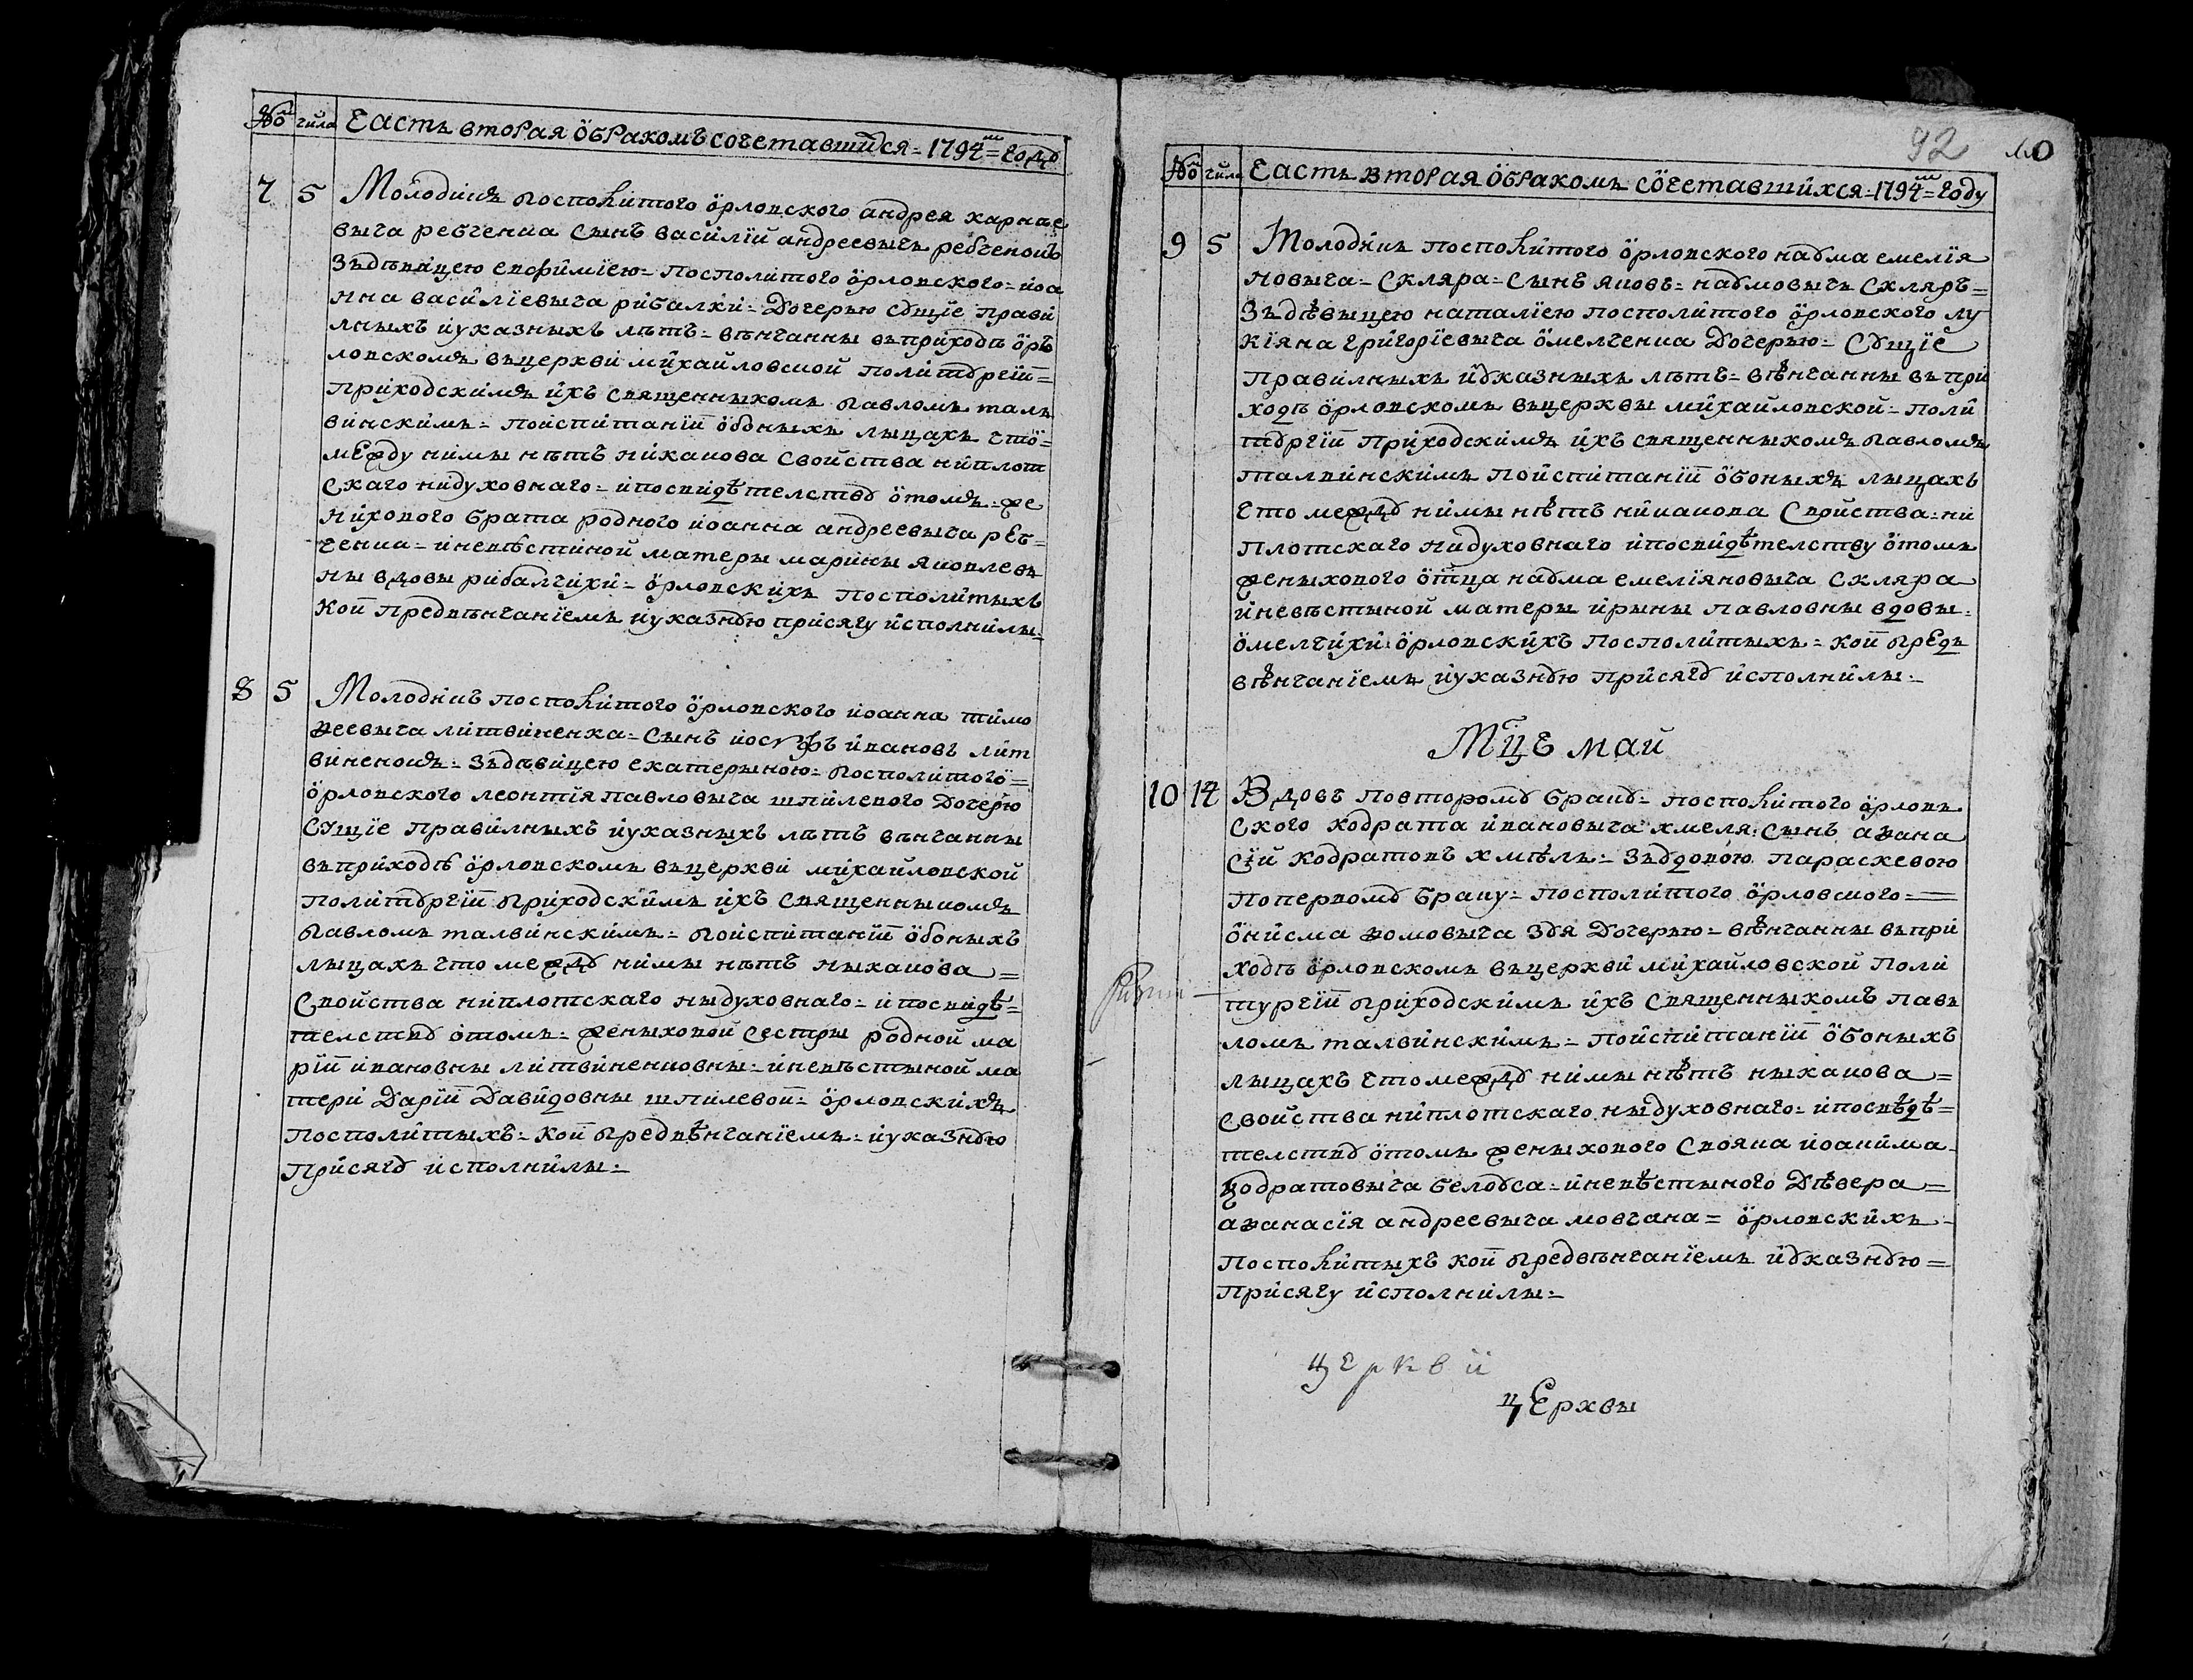 № числа Часть вторая ѡ бракомъ сочетавшихся = 1794 = году
7 5 Молодикъ посполитого ѡрловского андрея харпае
выча ребченка сынъ василїй андреевычъ ребченокъ
зъдѣвицею евфимїею = посполитого ѡрловского = иоа
нна василїевыча рибалки = дочерью сꙋщїе прави
лныхъ иуказныхъ лѣтъ = вѣнчанны въприходѣ ѡръ
ловскомъ въцеркви михайловской политꙋргїи =
приходскимъ ихъ священныкомъ павломъ таль
винскимъ = поиспитанїи ѡбоныхъ лыцахъ что =
между нимы нѣтъ никакова свойства ниплот
скаго нидуховнаго = ипосвидѣтелствꙋ ѡтомъ = же
нихового брата родного иоанна андреевыча реб =
ченка = иневѣстиной матеры марины яковлевъ
ны вдовы рибалчихи = ѡрловскихъ посполитыхъ
кои предвѣнчанїемъ иуказнꙋю присягу исполнилы =
8 5 Молодикъ посполитого ѡрловского иоанна тимо
ѳеевыча литвиненка = сынъ иосифъ ивановъ лит
виненокъ = зъдѣвицею екатерыною = посполитого =
ѡрловского леонтїя павловыча шпилевого дочерю
сущїе правилныхъ иуказныхъ лѣтъ вѣнчанны
въприходѣ ѡрловскомъ въцеркви михайловской
политꙋргїи приходскимъ ихъ священныкомъ
павломъ талвинскимъ = поиспитанїи ѡбоныхъ
лыцахъ что междꙋ нимы нѣтъ ныкакова =
свойства ниплотскаго ныдуховнаго = ипосвидѣ =
телствꙋ ѡтомъ = женыховой сестры родной ма
рїи ивановны литвиненковны = иневѣстыной ма
тери дарїи давидовны шпилевой = ѡрловскихъ
посполитыхъ = кои предвѣнчанїемъ = иуказнꙋю
присягꙋ исполнилы =
92
№ числа Часть вторая ѡ бракомъ сочетавшихся = 1794 = году
9 5 Молодикъ посполитого ѡрловского наꙋма емелїя
новыча = скляра = сынъ яковъ = наꙋмовычъ скляръ =
зъдѣвыцею наталїею посполитого ѡрловского лу
кїяна григорїевыча ѡмелченка дочерью = сꙋщїе
правилныхъ иꙋказныхъ лѣтъ = вѣнчанны въпри
ходѣ ѡрловскомъ въцерквы михайловской = поли
тꙋргїи приходскимъ ихъ священныкомъ павломъ
талвинскимъ поиспитанїи ѡбоныхъ лыцахъ
что междꙋ нимы нѣтъ никакова свойства = ни
плотскаго нидуховнаго ипосвидѣтелству ѡтомъ
женыхового ѡтца наꙋма емелїяновыча скляра
иневѣстыной матеры ирыны павловны вдовы =
ѡмелчихи ѡрловскихъ посполитыхъ = кои предъ
вѣнчанїемъ иуказнꙋю присягꙋ исполнилы =
Мцъ май
10 14 Вдовъ повторомꙋ бракꙋ = посполитого ѡрловъ
ского кодрата ивановыча хмеля = сынъ аѳана
сїй кодратовъ хмѣль = зъвдовою параскевою
поперво­мꙋ браку = посполитого ѡрловского =
ѡнисма ѳомовыча зꙋя дочерью = вѣнчанны въпри
ходѣ ѡрловскомъ въцеркви михайловской поли
тургїи приходскимъ ихъ священныкомъ павъ
ломъ талвинскимъ = поиспитанїи ѡбоныхъ
лыцахъ что междꙋ нимы нѣтъ ныкакова =
свойства ниплотскаго ныдуховнаго = ипосвѣдѣ =
телствꙋ ѡтомъ женыхового свояка иоакима
кодратовыча белоꙋса = иневѣстыного дѣвера =
аѳанасїя андреевыча мовчана = ѡрловскихъ =
посполитыхъ кои предвѣнчанїемъ иꙋказнꙋю =
присягу исполнилы =
церкви
церквы